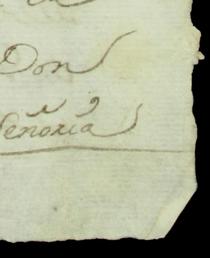 Don
Señoria